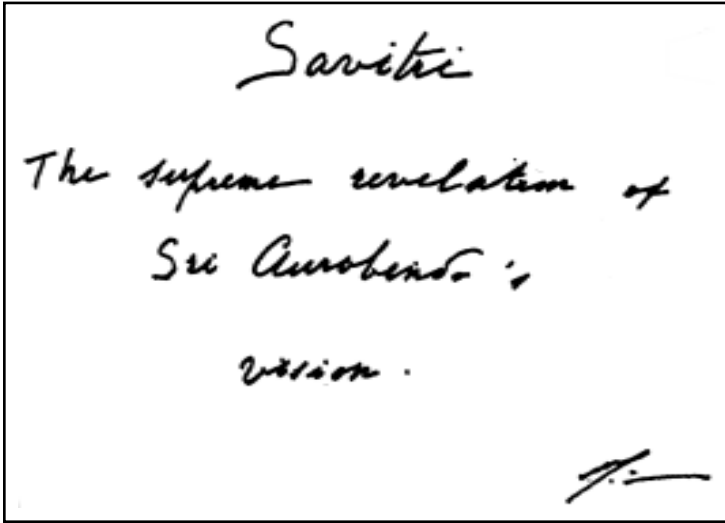 Savitri
The supreme revelation of
Sri Aurobindo's
vision.